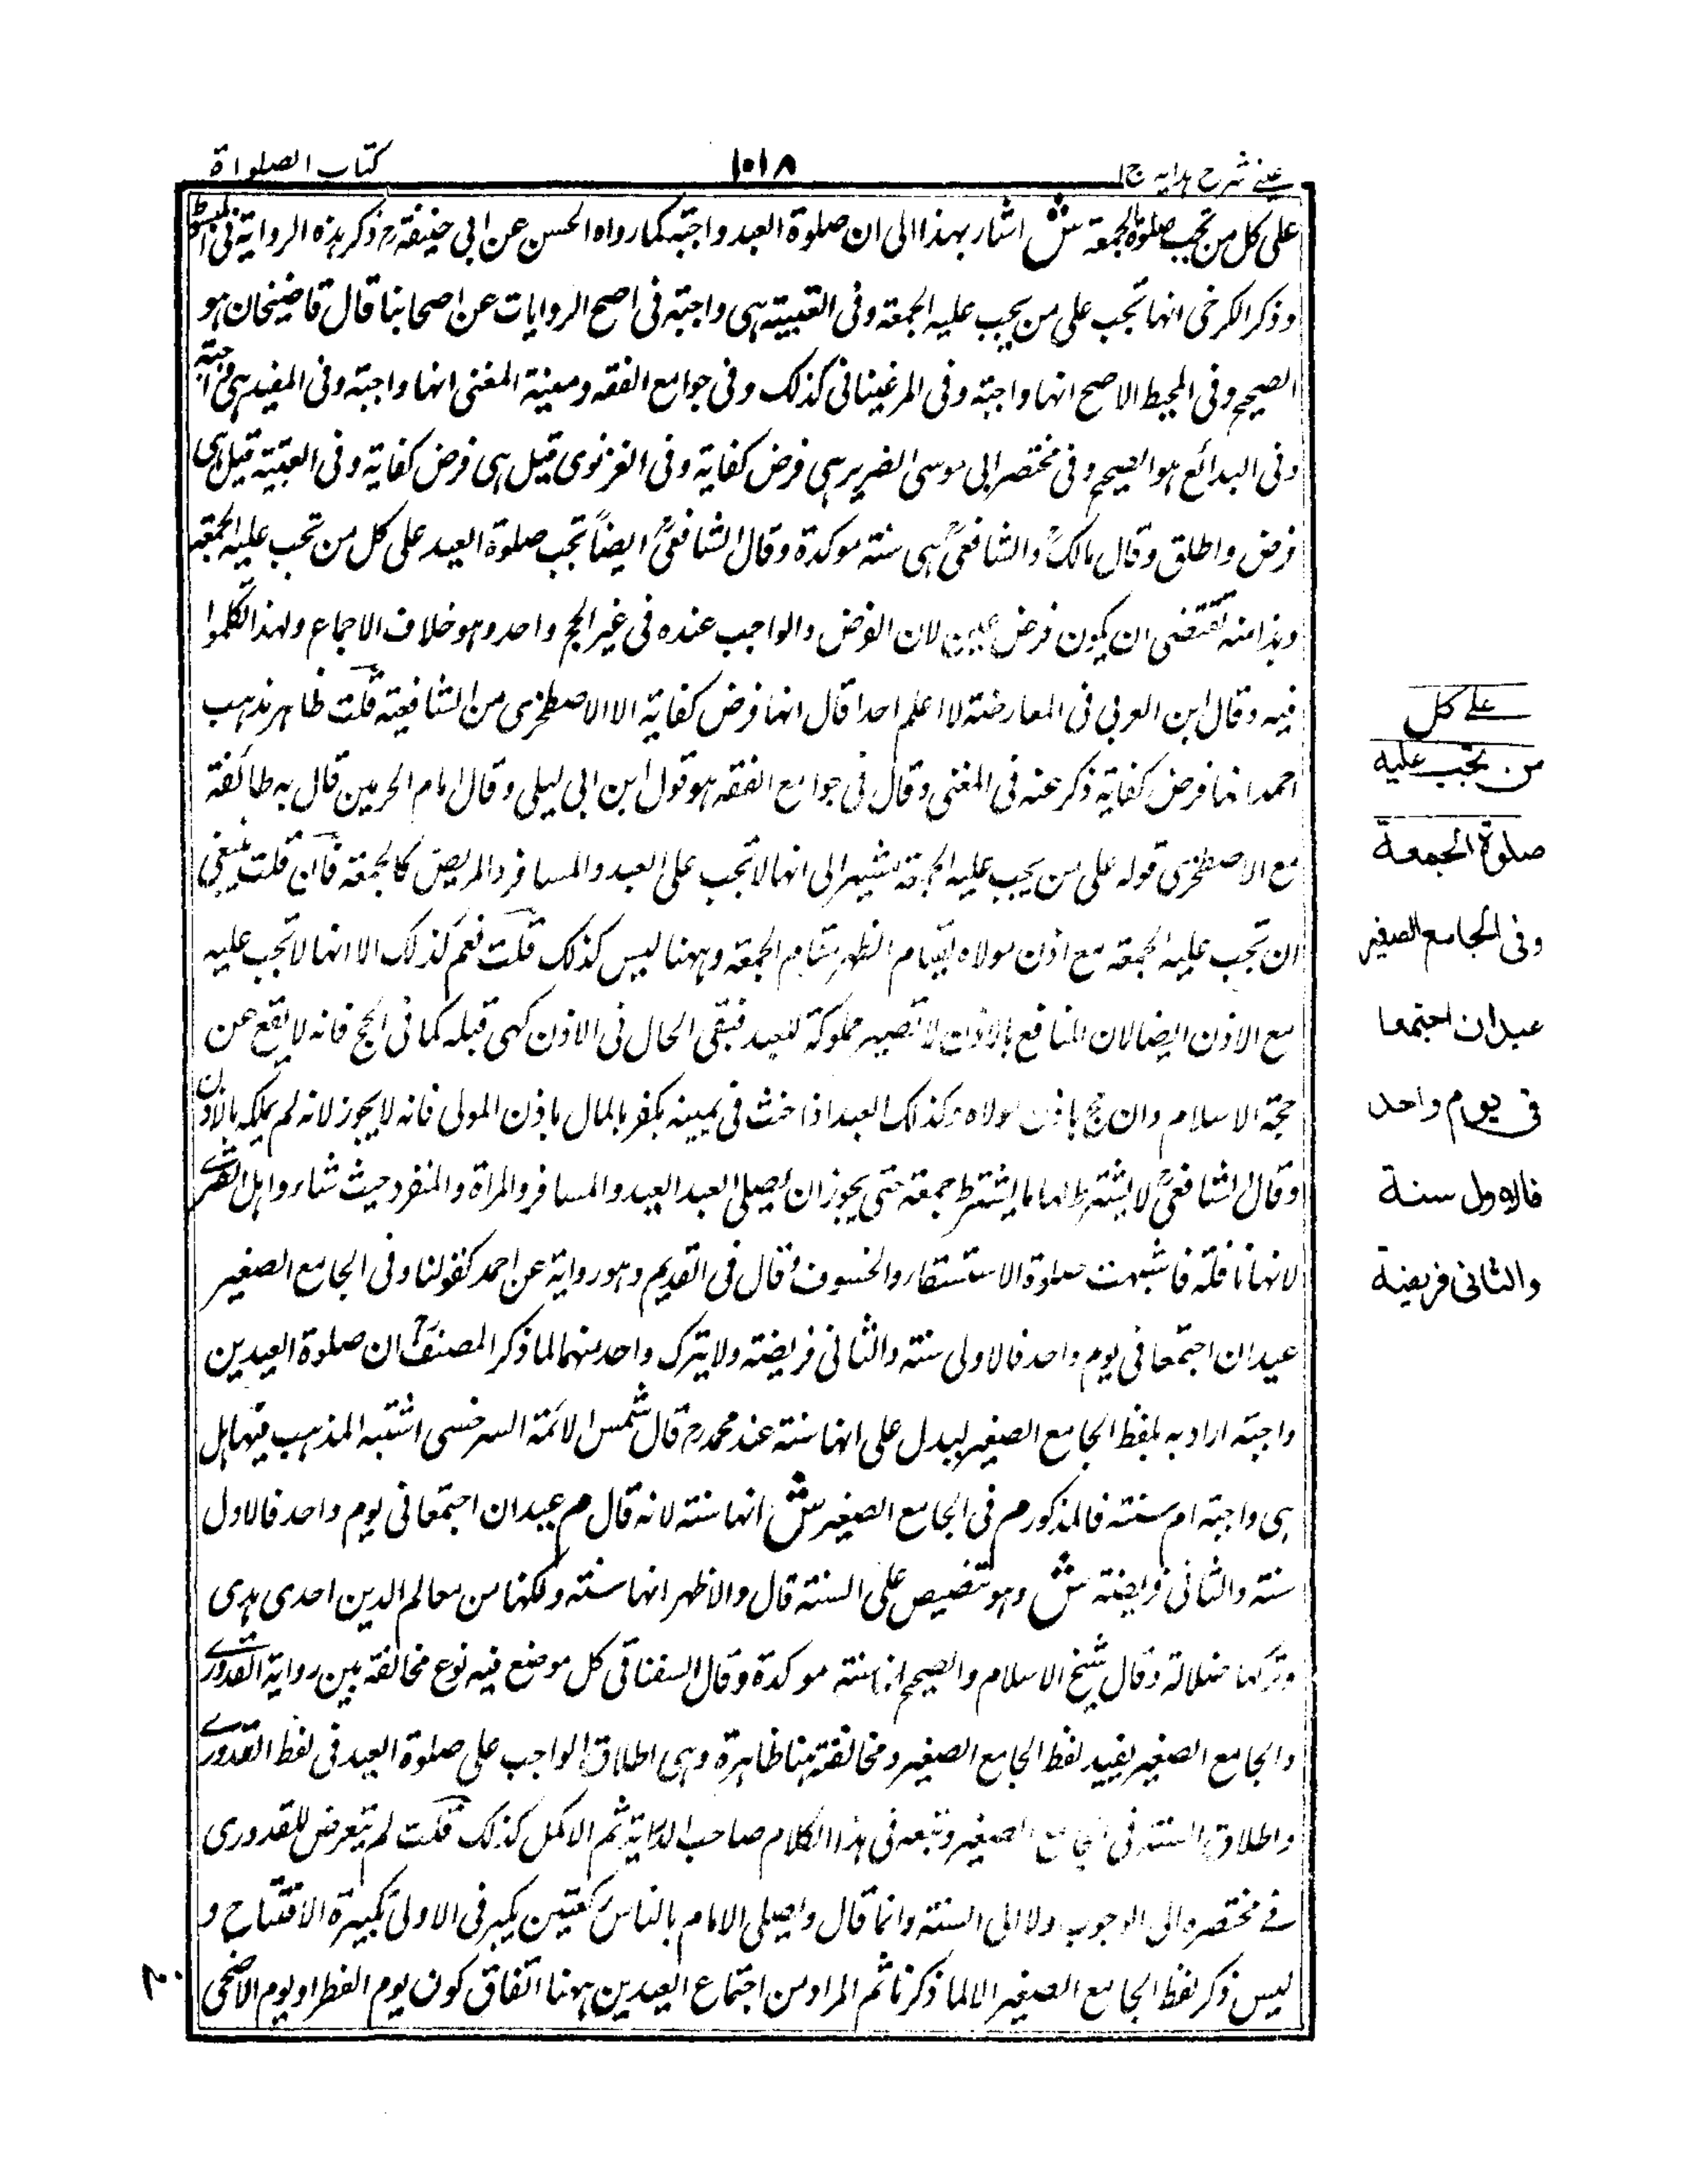 عینے شرح ہدایہ ج۱
۱۰۱۸
کتاب الصلواة
علی کل من تجب صلوة الجمعة ش اشار بهذا الی ان صلوة العید واجبة کما رواہ الحسن عن ابی حنیفة رح ذکر ہذہ الروایة فی المبسوط
وذکر الکرخی انها تجب علی من یجب علیه الجمعة وفی القنیة ہی واجبة فی اصح الروایات عن اصحابنا قال قاضیخان ہو
الصحیح وفی المحیط الاصح انها واجبة وفی المرغینانی کذلک وفی جوامع الفقه ومنیة المغنی انها واجبة وفی المفید ہی واجبة
وفی البدائع ہو الصحیح وفی مختصر ابی موسی الضریر ہی فرض کفایة وفی الغزنوی قیل ہی فرض کفایة وفی القنیة قیل ہی
فرض واطلق وقال مالکؒ والشافعیؒ ہی سنة موکدة وقال الشافعیؒ ایضاً تجب صلوة العید علی کل من تجب علیه الجمعة
وہذا منه تقتضی ان یکون فرض عین لان الفرض والواجب عندہ فی غیر الحج واحد وہو خلاف الاجماع ولهذا تکلموا
فیه وقال ابن العربی فی المعارضة لا اعلم احدا قال انها فرض کفایة الا الاصطخری من الشافعیة قلت ظاہر مذہب
احمد انها فرض کفایة ذکر عنه فی المغنی وقال فی جوامع الفقه ہو قول ابن ابی لیلی وقال امام الحرمین قال به طائفة
مع الاصطخری قوله علی من یجب علیه الجمعة یشیر الی انها لا تجب علی العبد والمسافر والمریض کالجمعة فان قلت ینبغی
ان تجب علیه الجمعة مع اذن مولاہ لقیام الظهر مقام الجمعة وہهنا لیس کذلک قلت نعم کذلک الا انها لا تجب علیه
مع الاذن ایضا لان المنافع بالاذن لا تصیر مملوکة للعبد فبقی الحال فی الاذن کهی قبله کما فی الحج فانه لا یقع عن
حجة الاسلام وان حج باذن مولاہ وکذلک العبد اذا حنث فی یمینه یکفر بالمال باذن المولی فانه لا یجوز لانه لم یملکه بالاذن
وقال الشافعیؒ لا یشترط لها ما یشترط جمعة حتی یجوز ان یصلی العبد العید والمسافر والمراة والمنفرد حیث شاء واہل القرے
لانها نافلة فاشبهت صلوة الاستسقاء والخسوف وقال فی القدیم وہو روایة عن احمد کقولنا وفی الجامع الصغیر
عیدان اجتمعا فی یوم واحد فالاولی سنة والثانی فریضة ولا یترک واحد منهما لما ذکر المصنفؒ ان صلوة العیدین
واجبة اراد به بلفظ الجامع الصغیر لیدل علی انها سنة عند محمد رح قال شمس الائمة السرخسی اشتبه المذہب فیها ہل
ہی واجبة ام سنة فالمذکور م فی الجامع الصغیر ش انها سنة لانه قال م عیدان اجتمعا فی یوم واحد فالاول
سنة والثانی فریضة ش وہو تنصیص علی السنة قال والاظهر انها سنة ولکنها من معالم الدین احدی ہدی
وترکها ضلالة وقال شیخ الاسلام والصحیح انها سنة موکدة وقال السغناقی کل موضع فیه نوع مخالفة بین روایة القدورے
والجامع الصغیر یقید لفظ الجامع الصغیر ومخالفة ہهنا ظاہرة وہی اطلاق الواجب علی صلوة العید فی لفظ القدورے
واطلاق السنة فی الجامع الصغیر وتبعه فی ہذا الکلام صاحب الدرایة ثم الاکمل کذلک قلت لم یتعرض للقدوری
فے مختصرہ الی الوجوب ولا الی السنة وانما قال ویصلی الامام بالناس رکعتین یکبر فی الاولی تکبیرة الافتتاح و
لیس ذکر لفظ الجامع الصغیر الا لما ذکرنا ثم المراد من اجتماع العیدین ہهنا اتفاق کون یوم الفطر او یوم الاضحی
علے کل
من تجب علیه
صلوة الجمعة
وفی الجامع الصغیر
عیدان اجتمعا
فی یوم واحد
فالاول سنة
والثانی فریضة